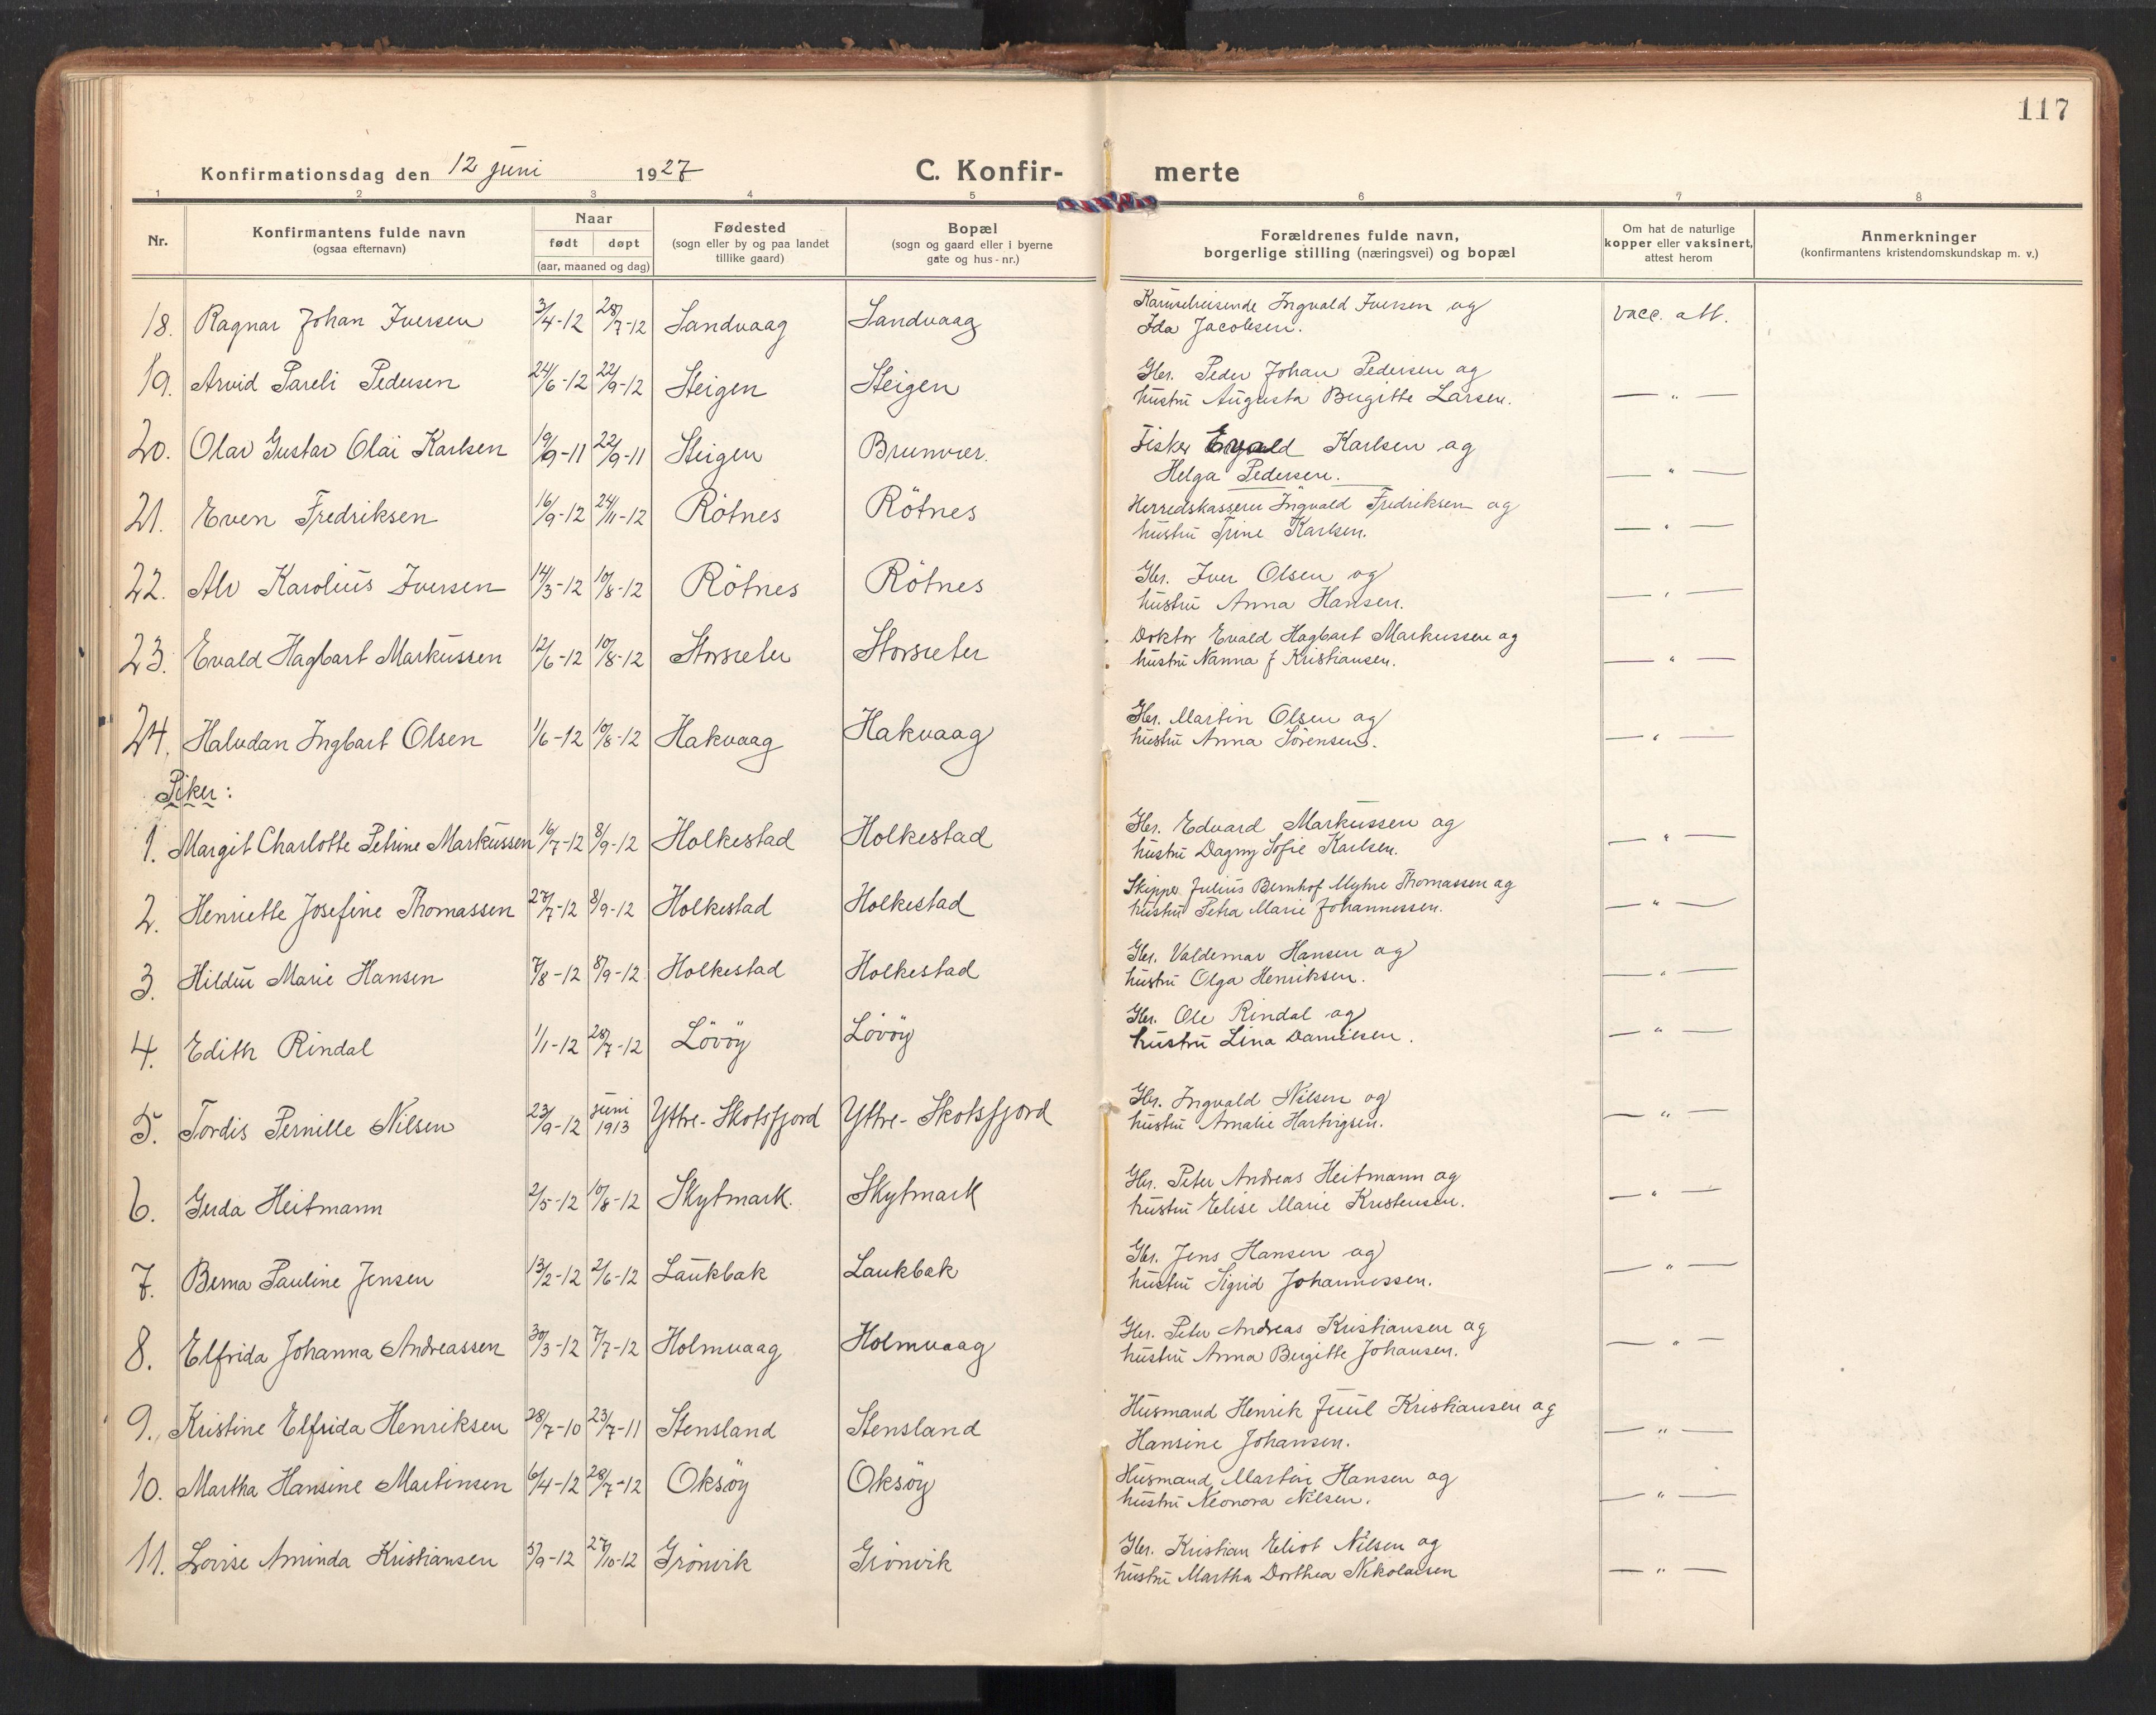 117
Konfirmationsdag den 12 juni 1927 C. Konfir- merte
1 2 3 4 5 6 7 8
Nr.
Konfirmantens fulde navn
(ogsaa efternavn)
Naar
født døpt
(aar, maaned og dag)
Fødested
(sogn eller by og paa landet
tillike gaard)
Bopæl
(sogn og gaard eller i byerne
gate og hus-nr.)
Forældrenes fulde navn,
borgerlige stilling (næringsvei) og bopæl
Om hat de naturlige
kopper eller vaksinert,
attest herom
Anmerkninger
(konfirmantens kristendomskundskap m. v.)
18. Ragnar Johan Iversen 3/4-12 28/7-12 Sandvaag Sandvaag Ingvald Iversen og vacc. att.
Ida Jacobsen.
19. Arvid Pareli Pedersen 24/6-12 22/9-12 Steigen Steigen Gbr. Peder Johan Pedersen og
hustru Augusta Birgitte Larsen. — " —
20. Olav Gustav Olai Karlsen 19/9-11 22/9-11 Steigen Brunvær. Fisker Karlsen og
Helga Pedersen. — " —
21. Even Fredriksen 16/9-12 24/11-12 Rötnes Rötnes Herredskasserer Ingvald Fredriksen og
hustru Trine Karlsen. — " —
22. Alv Karolius Iversen 14/3-12 10/8-12 Rötnes Rötnes Gbr. Iver Olsen og
hustru Anna Hansen. — " —
23. Evald Hagbart Markussen 12/6-12 10/8-12 Storsæter Storsæter Doktor Evald Hagbart Markussen og
hustru Nanna J Kristiansen. — " —
24. Halvdan Ingbart Olsen 1/6-12 10/8-12 Hakvaag Hakvaag Gbr. Martin Olsen og
hustru Anna Sörensen. — " —
Piker:
1. Margit Charlotte Petrine Markussen 16/7-12 8/9-12 Holkestad Holkestad Gbr. Edvard Markussen og
hustru Dagny Sofie Karlsen. — " —
2. Henriette Josefine Thomassen 27/7-12 8/9-12 Holkestad Holkestad Skipper Julius Bernhof Myhre Thomassen og
hustru Petra Marie Johannessen. — " —
3. Hildur Marie Hansen 7/8-12 8/9-12 Holkestad Holkestad Gbr. Valdemar Hansen og
hustru Olga Henriksen. — " —
4. Edith Rindal 1/1-12 28/7-12 Lövöy Lövöy Gbr. Ole Rindal og
hustru Lina Danielsen. — " —
5. Tordis Pernille Nilsen 23/9-12 juni 1913 Ytre-Skotsfjord Ytre-Skotsfjord Gbr. Ingvald Nilsen og
hustru Amalie Hartvigsen. — " —
6. Gerda Heitmann 2/5-12 10/8-12 Skytmark. Skytmark Gbr. Peter Andreas Heitmann og
hustru Elise Marie Kristensen. — " —
7. Berna Pauline Jensen 13/2-12 2/6-12 Laukbak Laukbak Gbr. Jens Hansen og
hustru Sigrid Johannessen. — " —
8. Elfrida Johanna Andreassen 30/3-12 7/7-12 Holmvaag Holmvaag Gbr. Peter Andreas Kristiansen og
hustru Anna Birgitte Johansen. — " —
9. Kristine Elfrida Henriksen 28/7-10 23/7-11 Stensland Stensland Husmand Henrik Juul Kristiansen og
Hansine Johansen. — " —
10. Martha Hansine Martinsen 6/4-12 28/7-12 Oksöy Oksöy Husmand Martin Hansen og
hustru Neonora Nilsen. — " —
11. Lovise Aminda Kristiansen 5/9-12 27/10-12 Grönvik Grönvik Gbr. Kristian Eliot Nilsen og
hustru Martha Dorthea Nikolaisen — " —